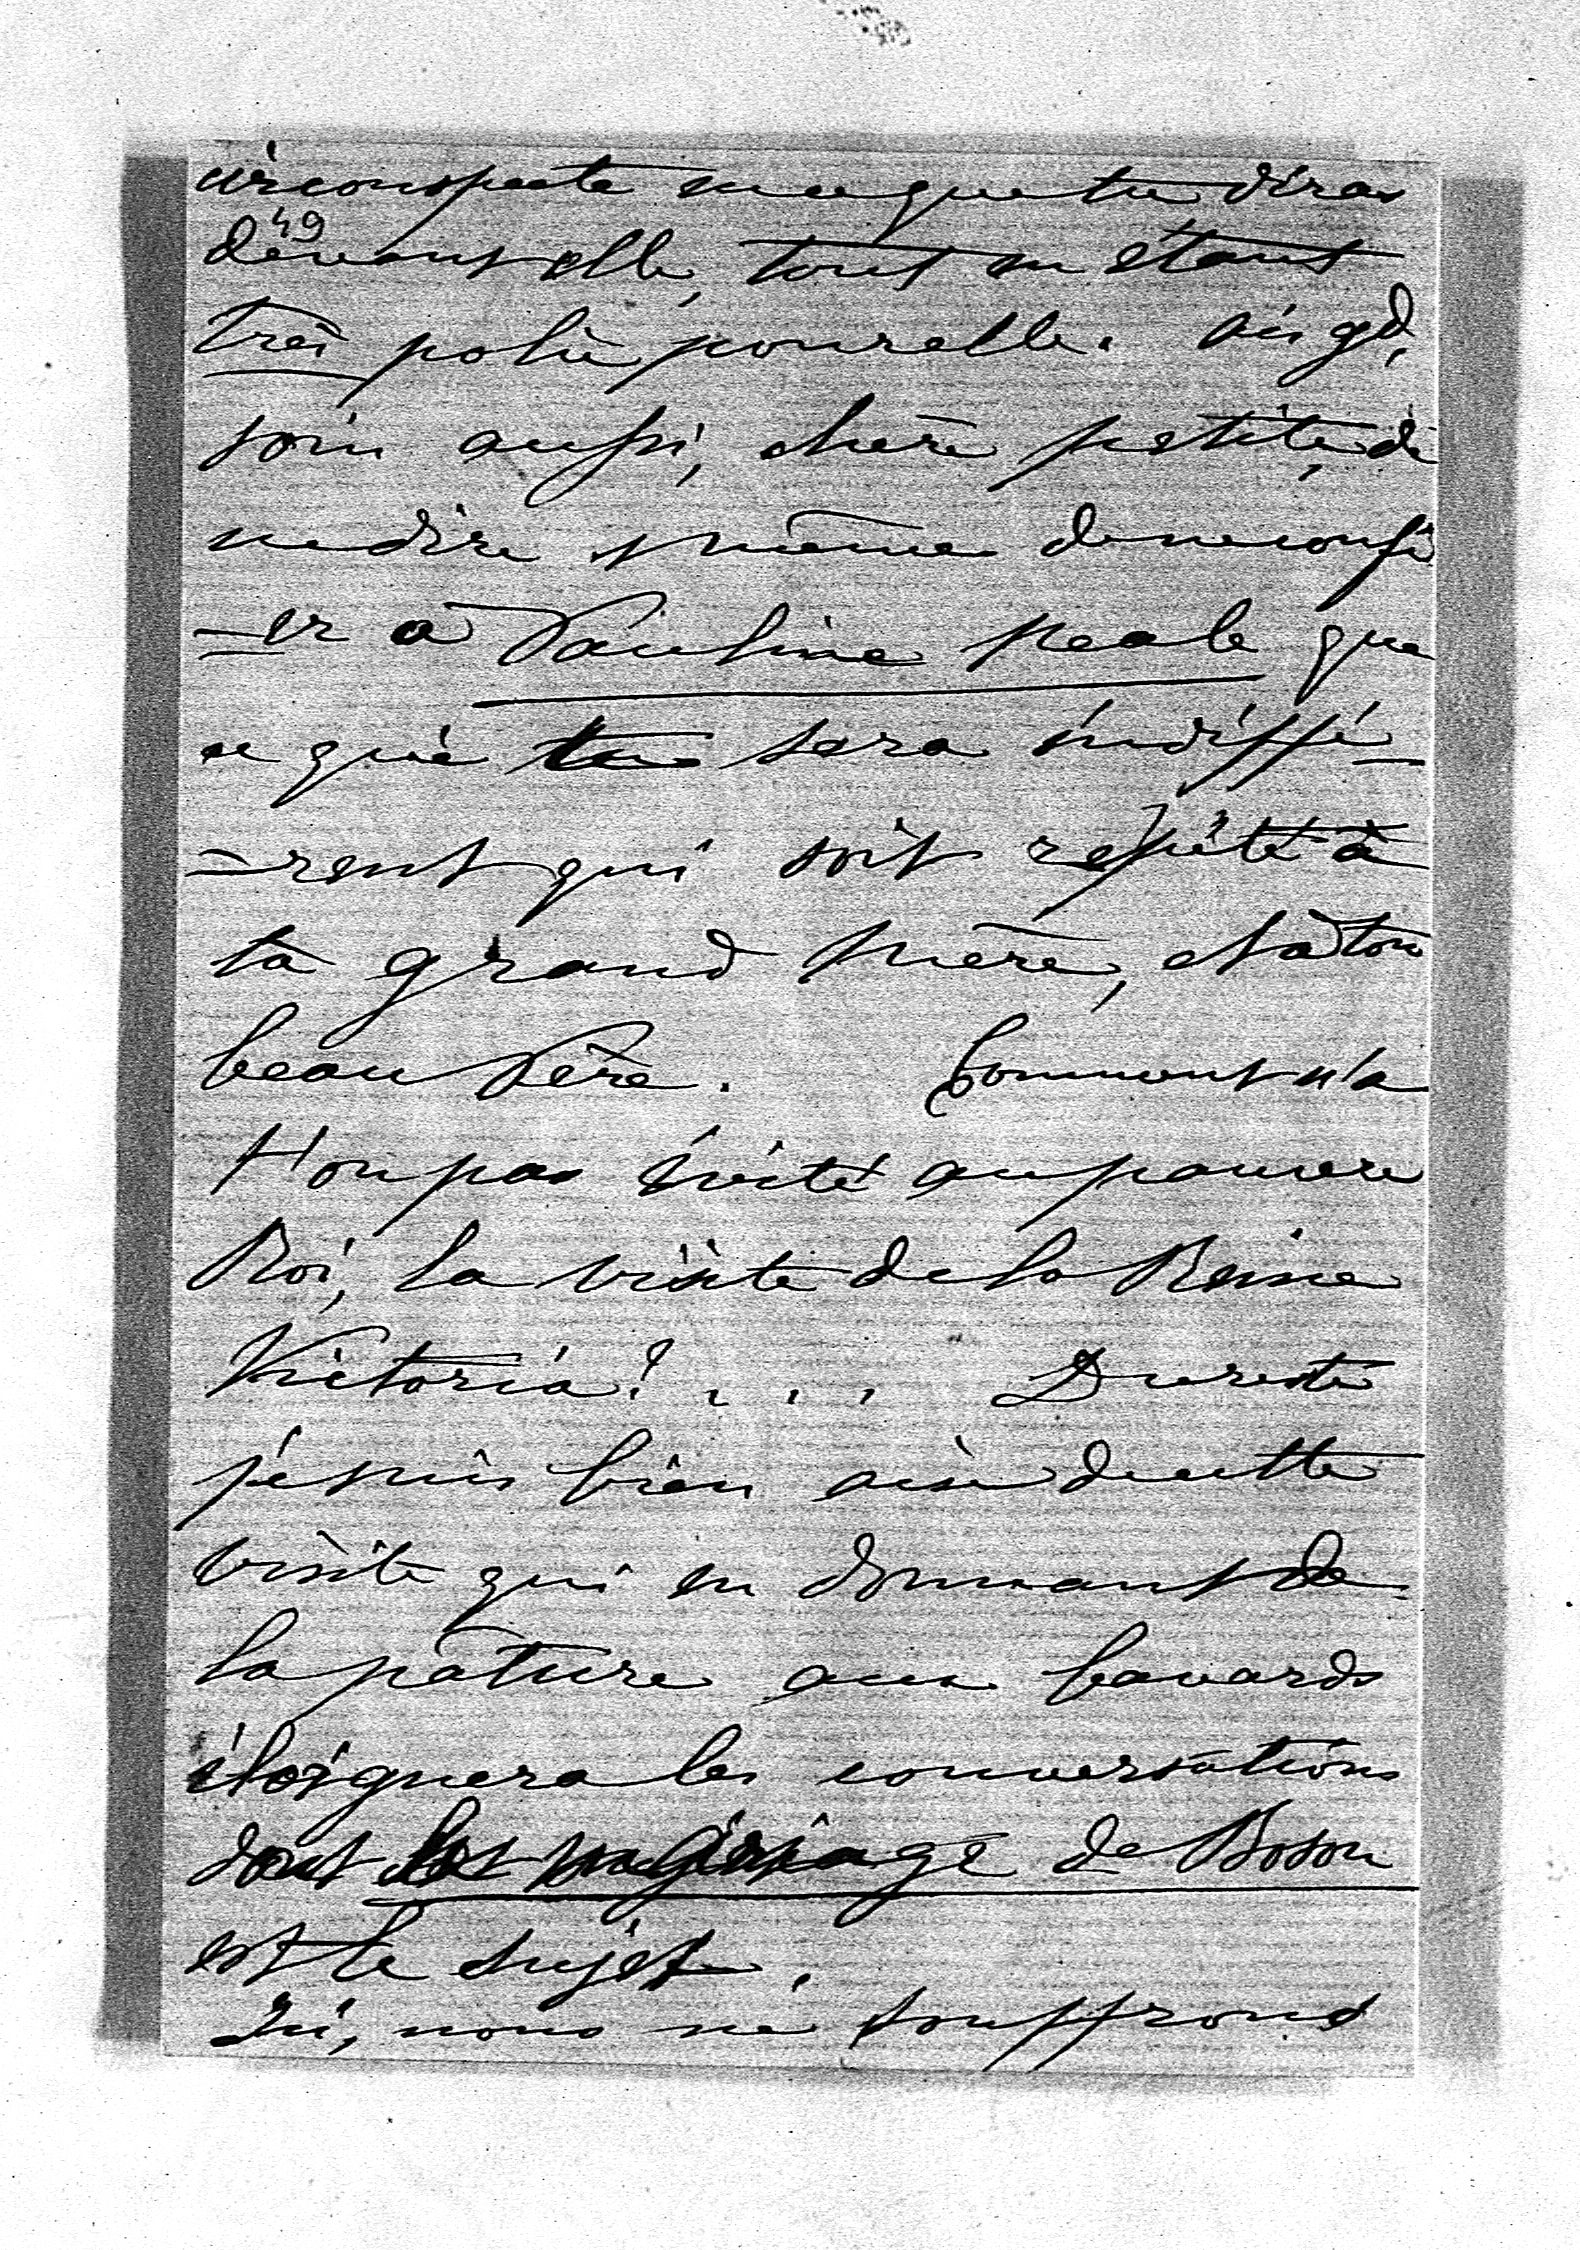 circonspecte en ce que tu diras
49
devant elle, tout en étant
très polie pour elle. Ais gd,
soin aussi, chère petite, de
ne dire même de ne confi
-er à Pauline que
ce qui te sera indiffé-
-rent qui soit répété à
ta grand Mère, et à ton
beau Père. Comment n'a
t'on pas évité au pauvre
Roi, la visite de la Reine
Victoria! . . . Du reste
je suis bien aise de cette
visite qui en donnant de
la pâture aux bavards
éloignera les conversations
dont le mariage de Boson
est le sujet.
Ici, nous ne souffrons